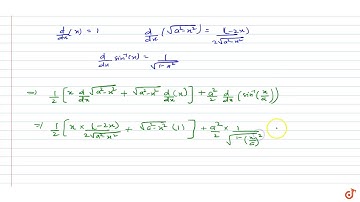 d/dx (x) = 1    d/dx (√(a²-x²)) = (-2x)/(2√(a²-x²))
d/dx sin⁻¹(x) = 1/√(1-x²)
⇒ 1/2 [x d/dx √(a²-x²) + √(a²-x²) d/dx (x)] + a²/2 d/dx (sin⁻¹(x/a))
⇒ 1/2 [x × (-2x)/(2√(a²-x²)) + √(a²-x²) (1)] + a²/2 × 1/√(1-(x/a)²)